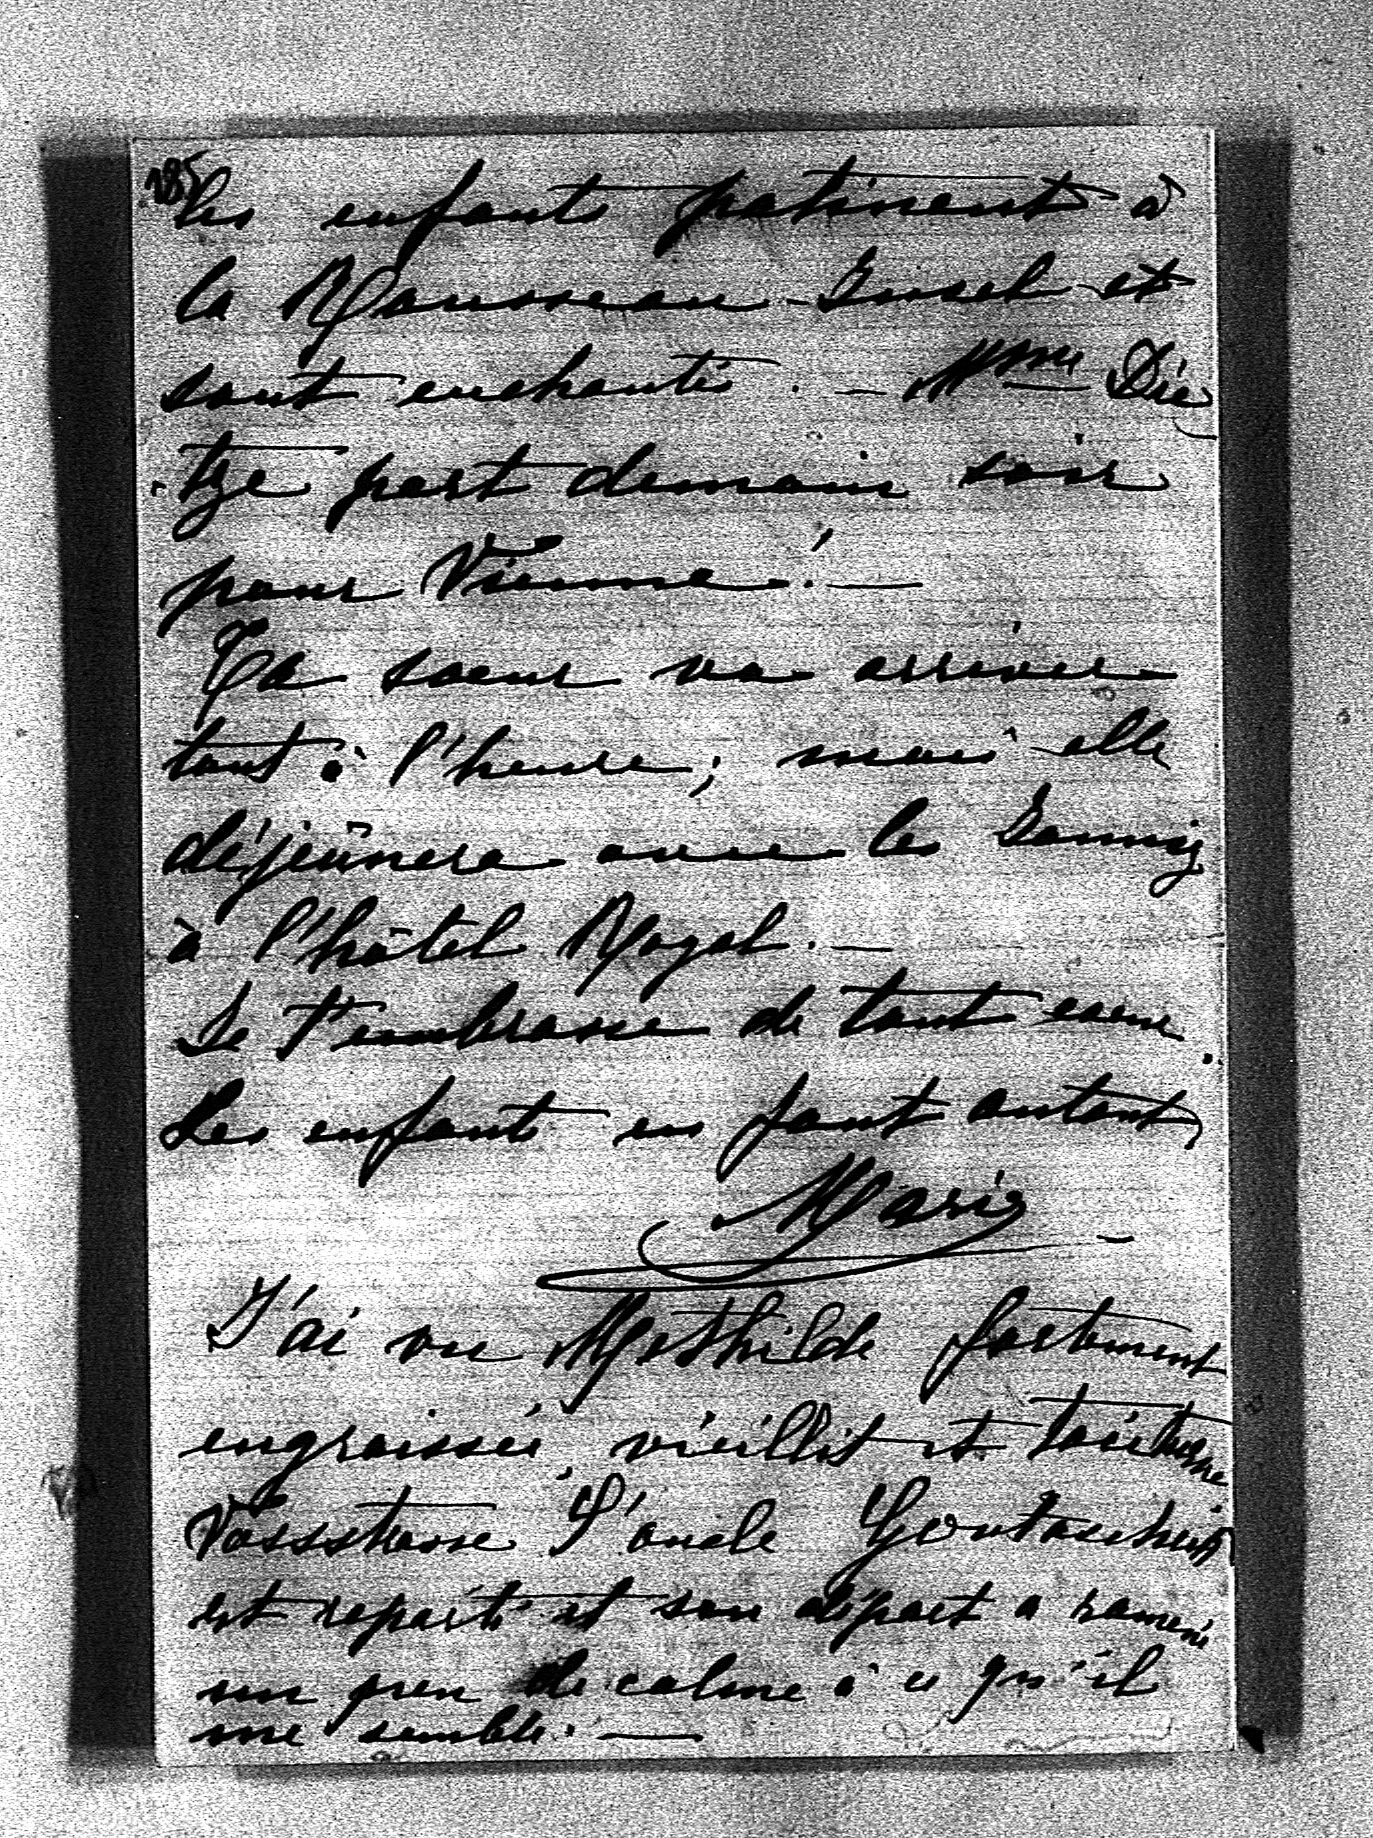 185
Les enfants patinent à
la Rousseau-Insel et
sont enchantés. — Mme Die
tze part demain soir
pour Vienne! —
Ta soeur va arriver
tout à l'heure; mais elle
déjeûnera avec les
à l'hôtel Royal. —
Je t'embrasse de tout coeur.
Les enfants en font autant
Marie
J'ai vu Mathilde fortement
engraissée, vieillit et taciturne
Vossstrasse. L'oncle
est reparti et son départ a ramené
un peu de calme à ce qu'il
me semble. —